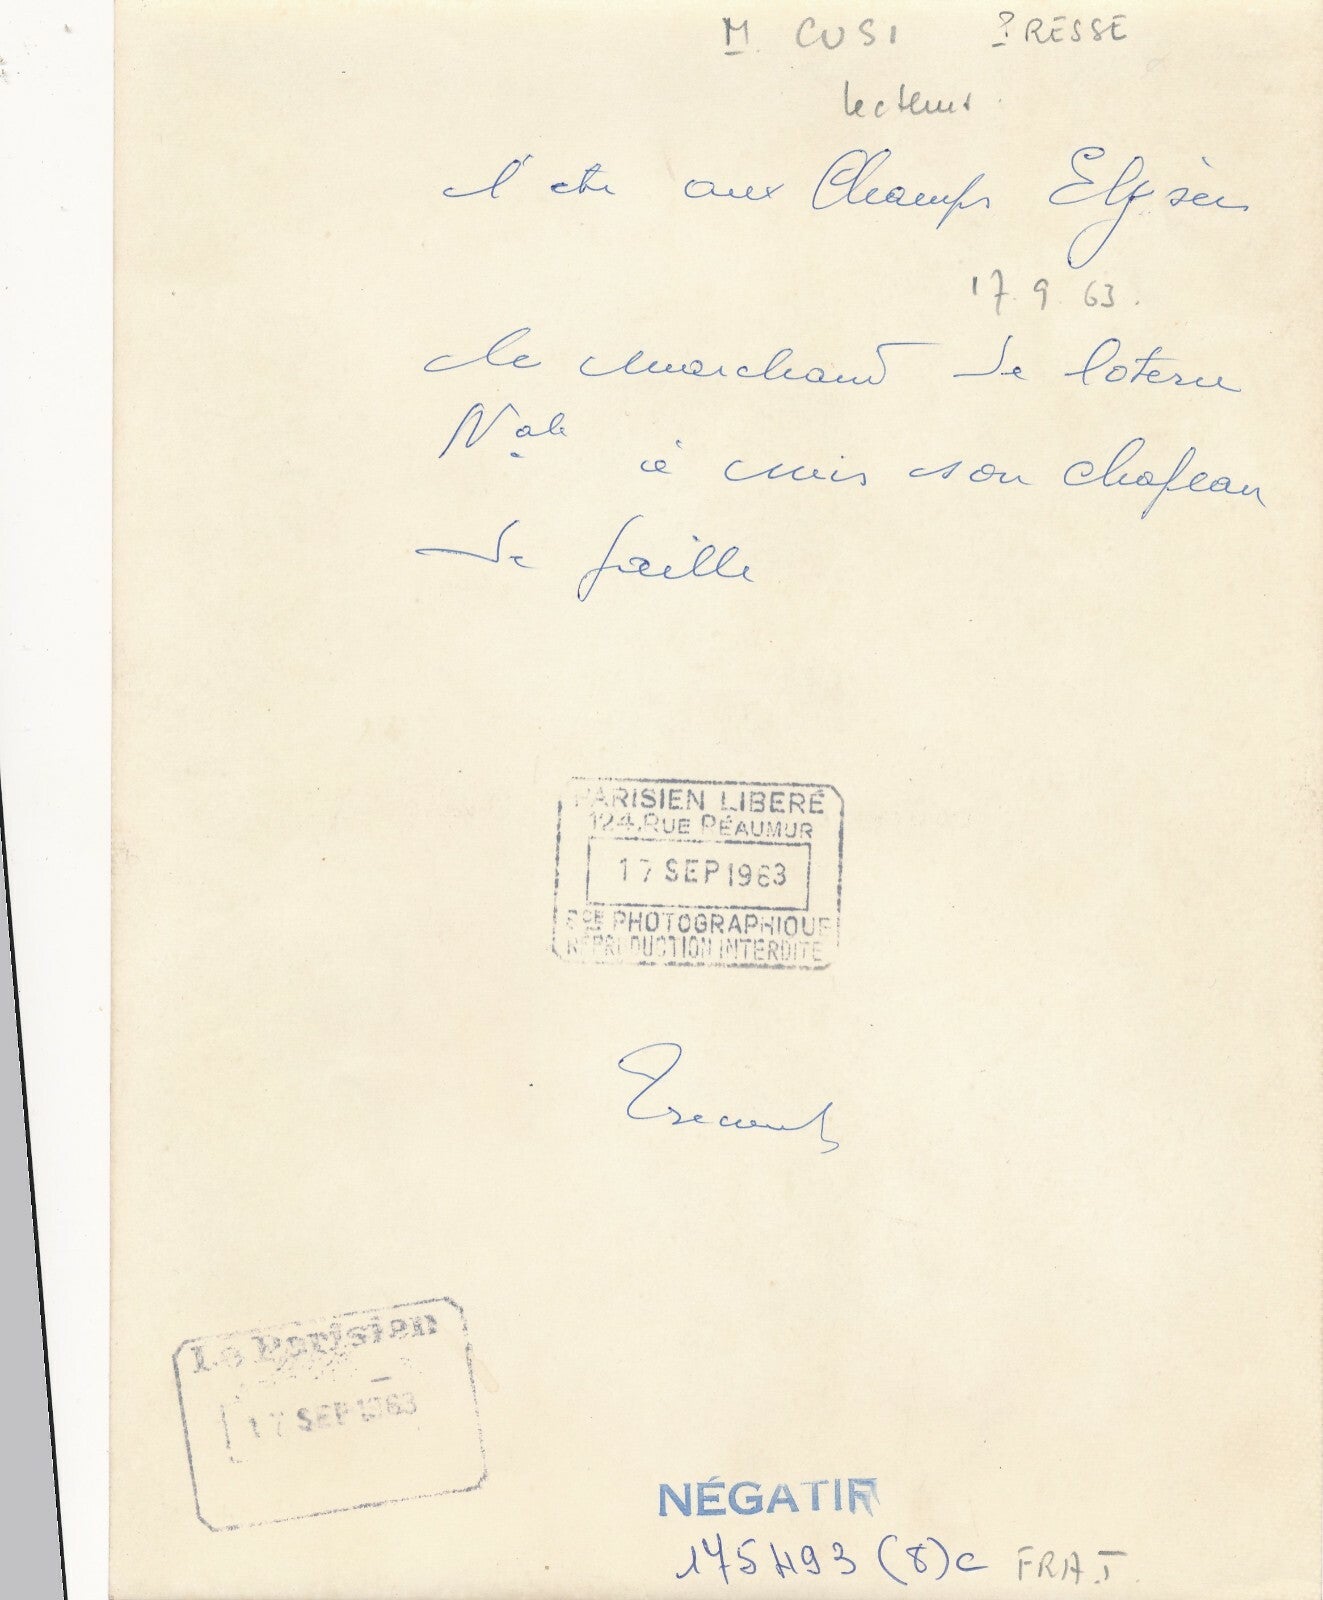 M. CUSI PRESSE
lecteur
L'été aux Champs Elysées
17.9.63.
le marchand de loterie
Nale a mis son chapeau
de paille
PARISIEN LIBERÉ
124, RUE RÉAUMUR
17 SEP 1963
SCE PHOTOGRAPHIQUE
REPRODUCTION INTERDITE
Le Parisien
17 SEP 1963
NÉGATIF
175493 (8)c FRA.T